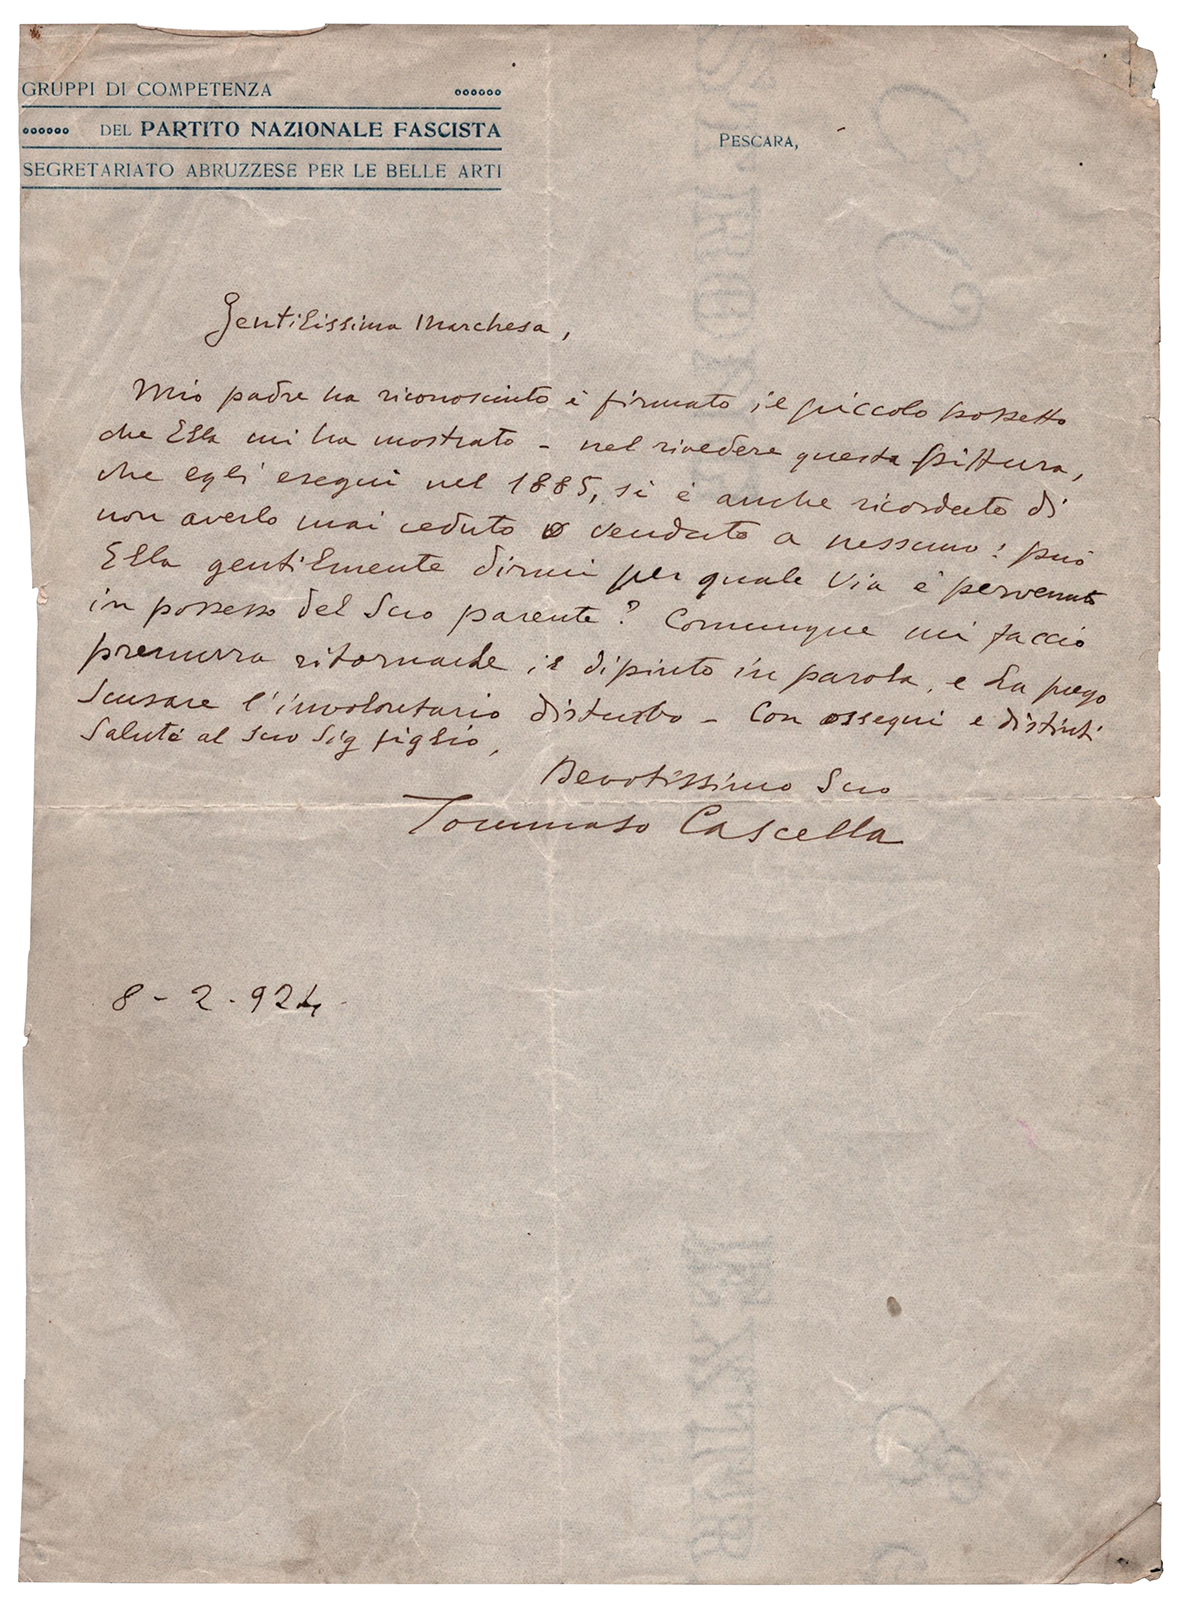 GRUPPI DI COMPETENZA
DEL PARTITO NAZIONALE FASCISTA
SEGRETARIATO ABRUZZESE PER LE BELLE ARTI
PESCARA,
Gentilissima Marchesa,
Mio padre ha riconosciuto è firmato il piccolo bozzetto
che Ella mi ha mostrato - nel rivedere questa pittura,
che egli eseguì nel 1885, si è anche ricordato di
non averlo mai ceduto o venduto a nessuno! può
Ella gentilmente dirmi per quale via è pervenuto
in possesso del Suo parente? Comunque mi faccio
premurra ritornarle il dipinto in parola, e La prego
scusare l'involontario disturbo - Con ossequi e distinti
saluti al suo Sig figlio,
Devotissimo Suo
Tommaso Cascella
8 - 2 - 924